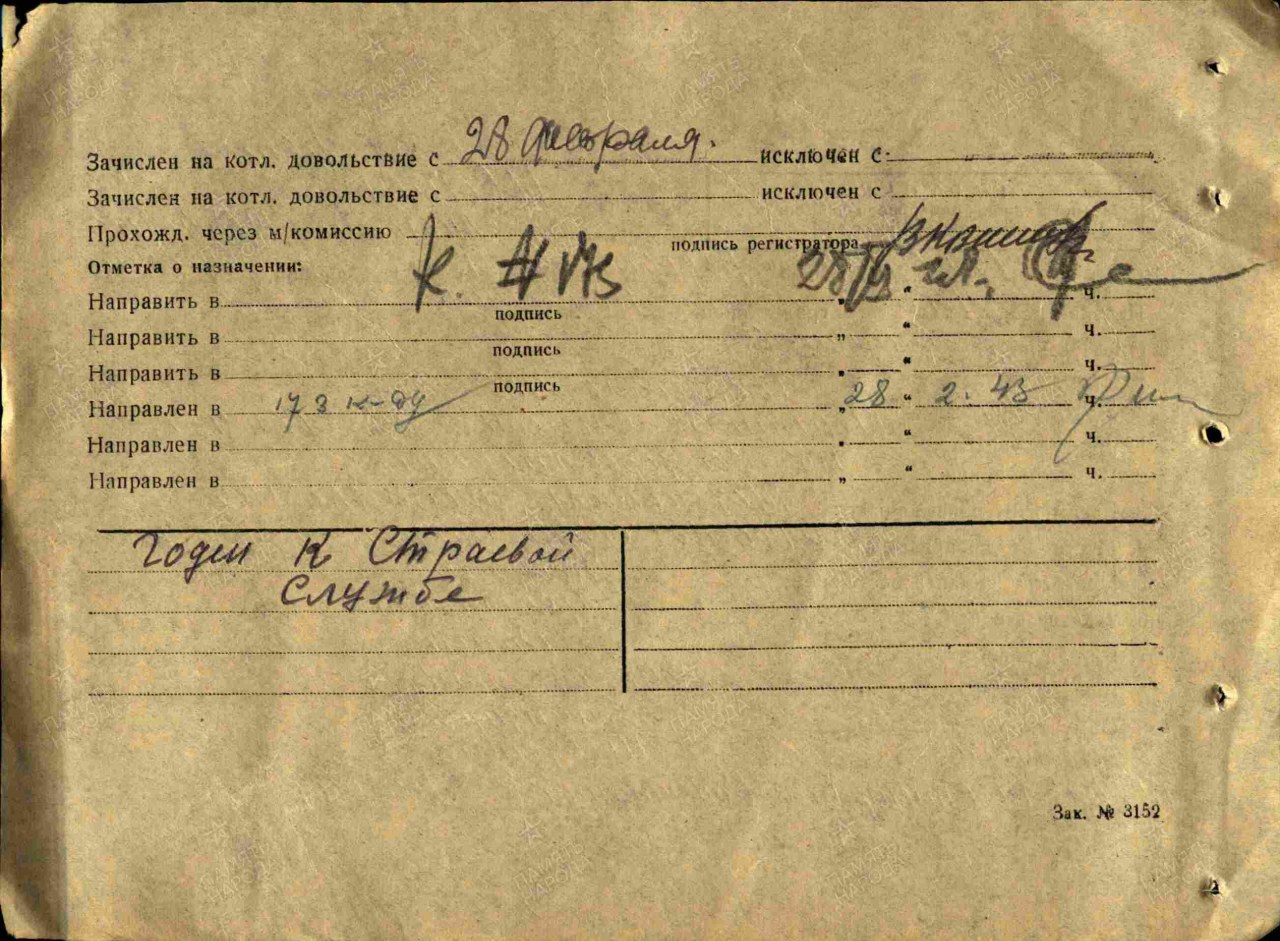 Зачислен на котл. довольствие с 28 февраля. исключен с
Зачислен на котл. довольствие с исключен с
Прохожд. через м/комиссию
подпись регистратора
Отметка о назначении:
Направить в „ “ ч.
подпись
Направить в „ “ ч.
подпись
Направить в „ “ ч.
подпись
Направлен в 173 „28“ 2. 43 ч.
Направлен в „ “ ч.
Направлен в „ “ ч.
Годен к Страевой
Службе
Зак. № 3152
ПАМЯТЬ НАРОДА